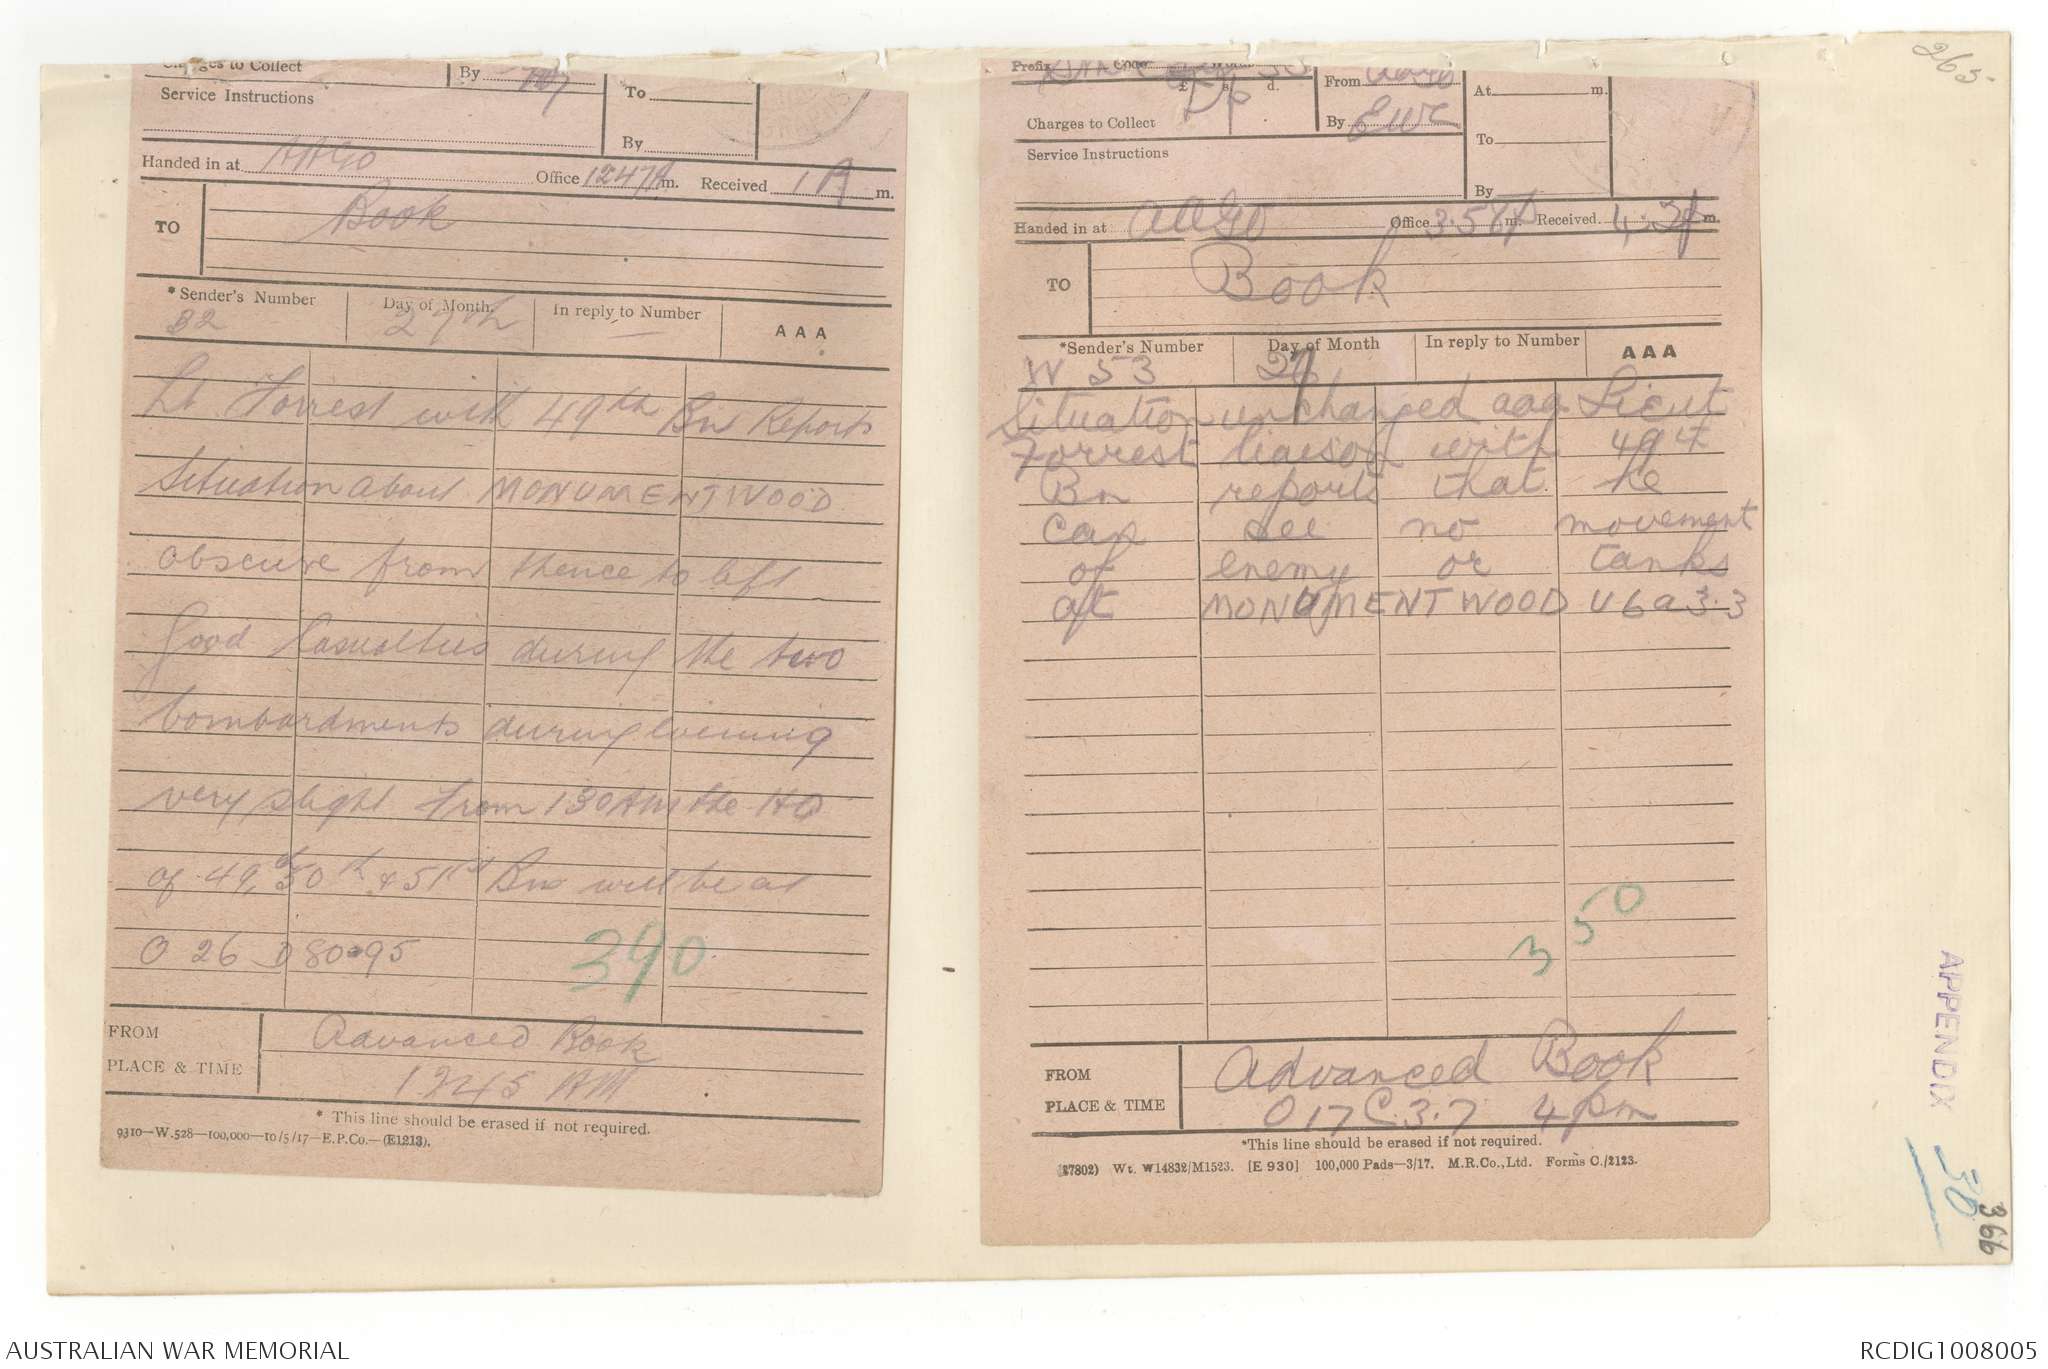 265
Charges to Collect
By
Service Instructions
To
By
Handed in at AAGO Office 1247A m. Received 1 A m.
TO Book
*Sender's Number Day of Month. In reply to Number AAA
B2 27th —
Lt Forrest with 49th Bn Reports
Situation about MONUMENT WOOD
obscure from thence to left
good Casualties during the two
bombardments during evening
very slight from 130 AM the HQ
of 49, 50th & 51st Bns will be at
O 26 D 80.95
390
FROM Advanced Book
PLACE & TIME 1245 AM
* This line should be erased if not required.
9310—W.528—100,000—10/5/17—E.P.Co.—(E1213).
Prefix Code Words
£ s. d.
Charges to Collect
From
By EWC
At m.
To
By
Service Instructions
Handed in at AAGO Office 3.58P m. Received 4.3P m.
TO Book
*Sender's Number Day of Month In reply to Number AAA
W 53 27
Situation unchanged aaa Lieut
Forrest liaison with 49th
Bn reports that he
can see no movement
of enemy or tanks
at MONUMENT WOOD U6a3.3
350
FROM Advanced Book
PLACE & TIME O 17 C.3.7 4pm
*This line should be erased if not required.
(27802) Wt. W14832/M1523. [E 930] 100,000 Pads—3/17. M.R.Co., Ltd. Forms C./2123.
APPENDIX
30
366
AUSTRALIAN WAR MEMORIAL
RCDIG1008005